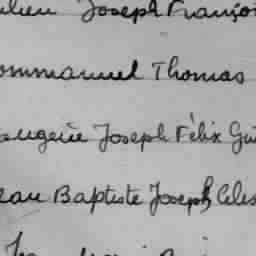 ulien Joseph Françoi
ommanuel Thomas
eugène Joseph Félix Gu
ean Baptiste Joseph Celes